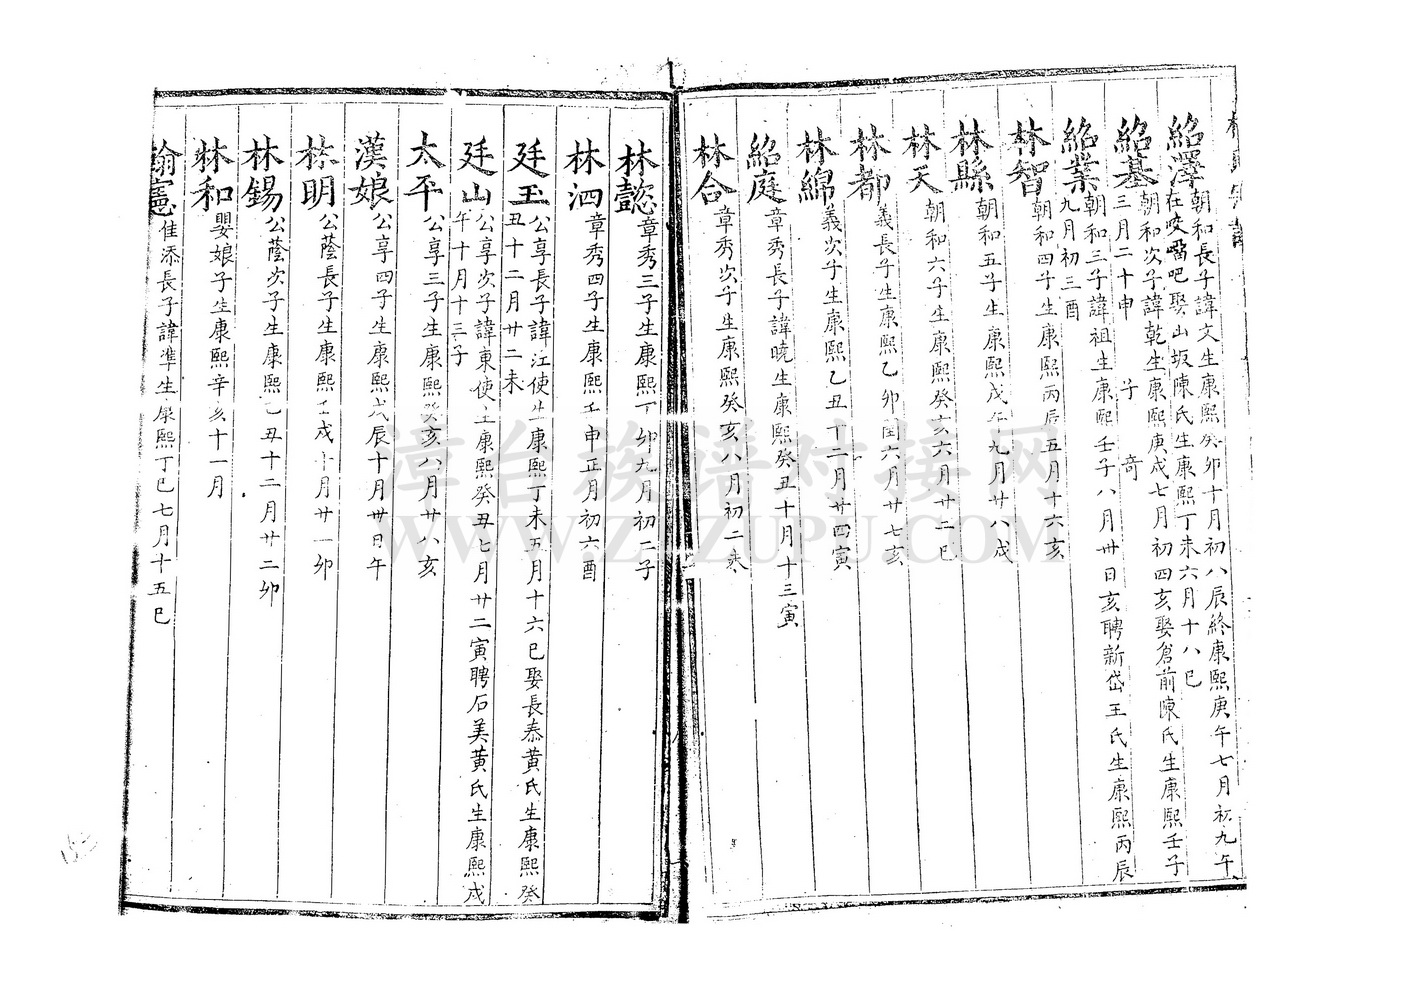 紹澤 朝和長子諱文生康熙癸卯十月初八辰終康熙庚午七月初九午
在咬𠺕吧娶山坂陳氏生康熙丁未六月十八巳
紹基 朝和次子諱乾生康熙庚戌七月初四亥娶倉前陳氏生康熙壬子
三月二十申 子 奇
紹業 朝和三子諱祖生康熙壬子八月卅日亥聘新岱王氏生康熙丙辰
九月初三酉
林智 朝和四子生康熙丙辰五月十六亥
林縣 朝和五子生康熙戊午九月廿八戌
林天 朝和六子生康熙癸亥六月廿二巳
林都 義長子生康熙乙卯閏六月廿七亥
林綿 義次子生康熙乙丑十二月廿四寅
紹庭 章秀長子諱曉生康熙癸丑十月十三寅
林合 章秀次子生康熙癸亥八月初二
林懿 章秀三子生康熙丁卯九月初二子
林泗 章秀四子生康熙壬申正月初六酉
廷玉 公享長子諱江使生康熙丁未五月十六巳娶長泰黃氏生康熙癸
丑十二月廿二未
廷山 公享次子諱東使生康熙癸丑七月廿二寅聘石美黃氏生康熙戊
午十月十三子
太平 公享三子生康熙癸亥八月廿八亥
漢娘 公享四子生康熙戊辰十月卅日午
林明 公蔭長子生康熙壬戌十月廿一卯
林錫 公蔭次子生康熙乙丑十二月廿二卯
林和 嬰娘子生康熙辛亥十一月
翰憲 佳添長子諱準生康熙丁巳七月十五巳
漳台族谱对接网
WWW.ZTZUPU.COM